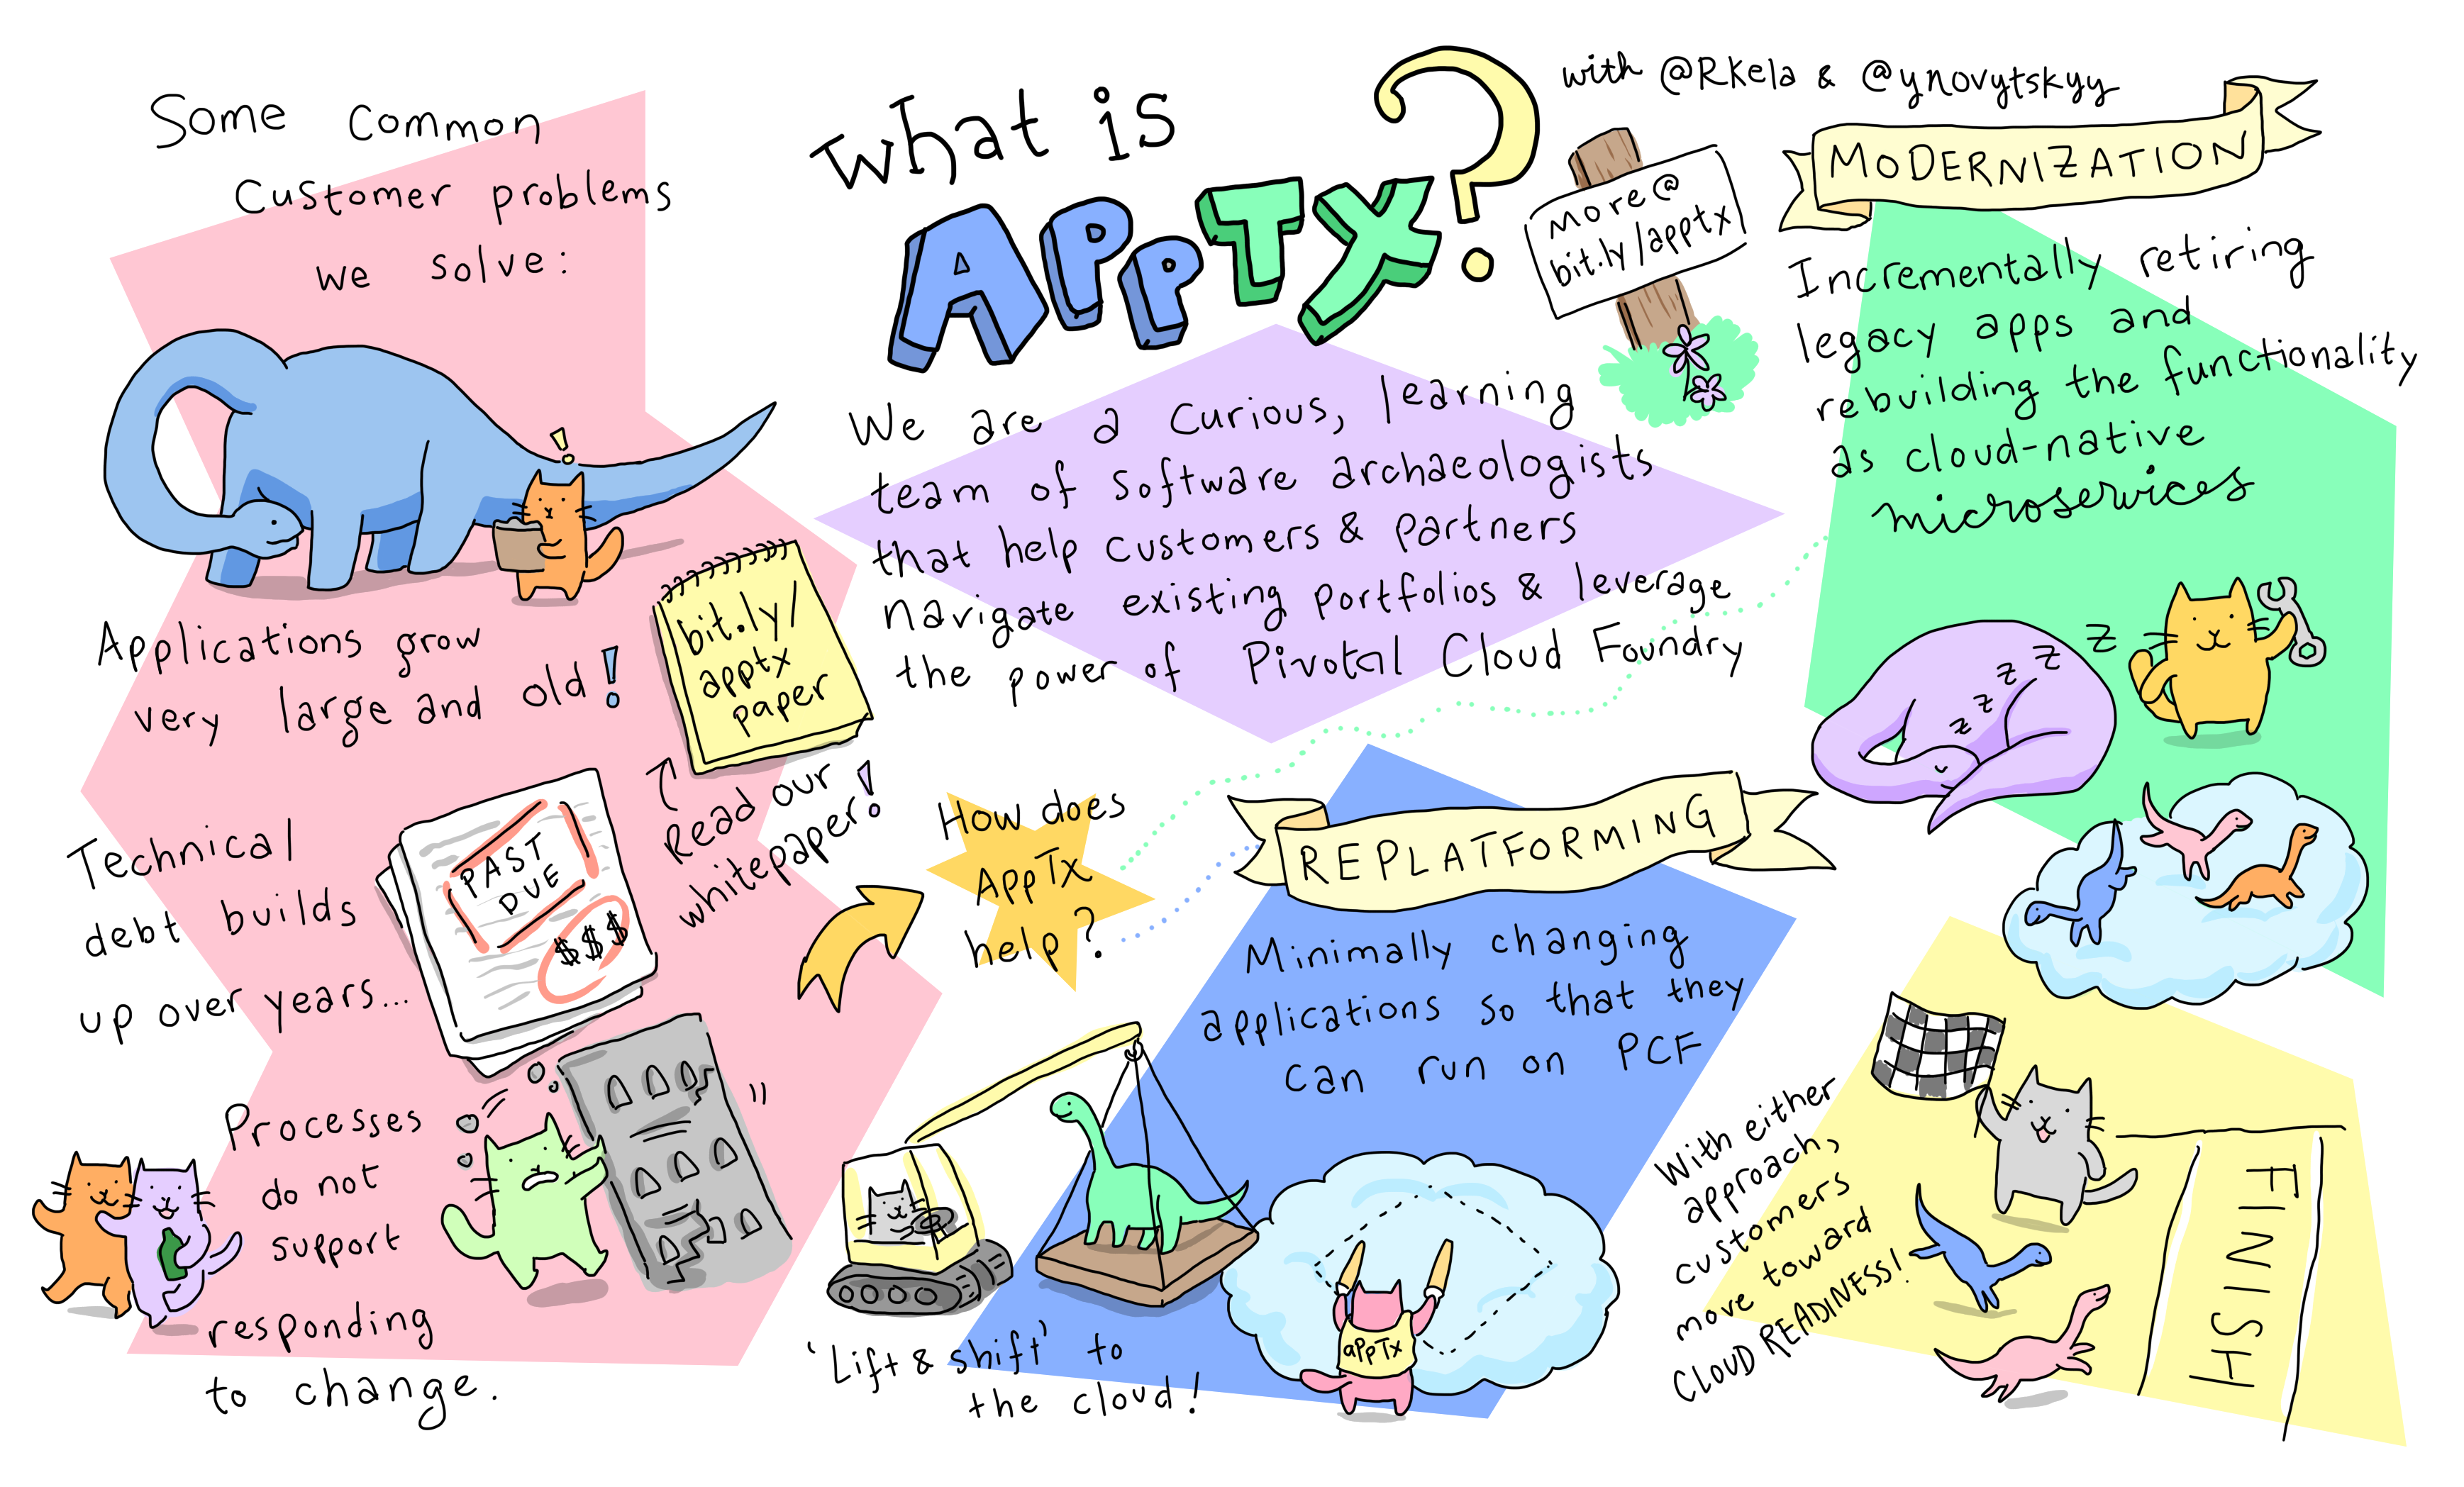 What is
AppTX?
with @Rkela & @ynovytskyy
more @
bit.ly/apptx
Some Common
Customer problems
we solve:
Applications grow
very large and old!
bit.ly/
apptx
paper
Read our
whitepaper!
Technical
debt builds
up over years...
PAST
DUE
$$$
Processes
do not
support
responding
to change.
We are a curious, learning
team of software archaeologists
that help customers & partners
navigate existing portfolios & leverage
the power of Pivotal Cloud Foundry
How does
AppTx
help?
REPLATFORMING
Minimally changing
applications so that they
can run on PCF
'Lift & shift' to
the cloud!
appTx
MODERNIZATION
Incrementally retiring
legacy apps and
rebuilding the functionality
as cloud-native
microservices
z z z z z
With either
approach,
customers
move toward
CLOUD READINESS!
FINISH